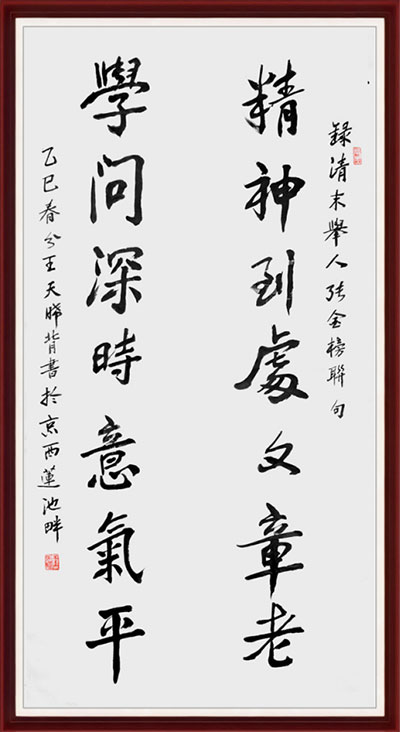 録清末舉人張金榜聯句
精神到處文章老
學問深時意氣平
乙巳春分王天晞背書於京西蓮池畔